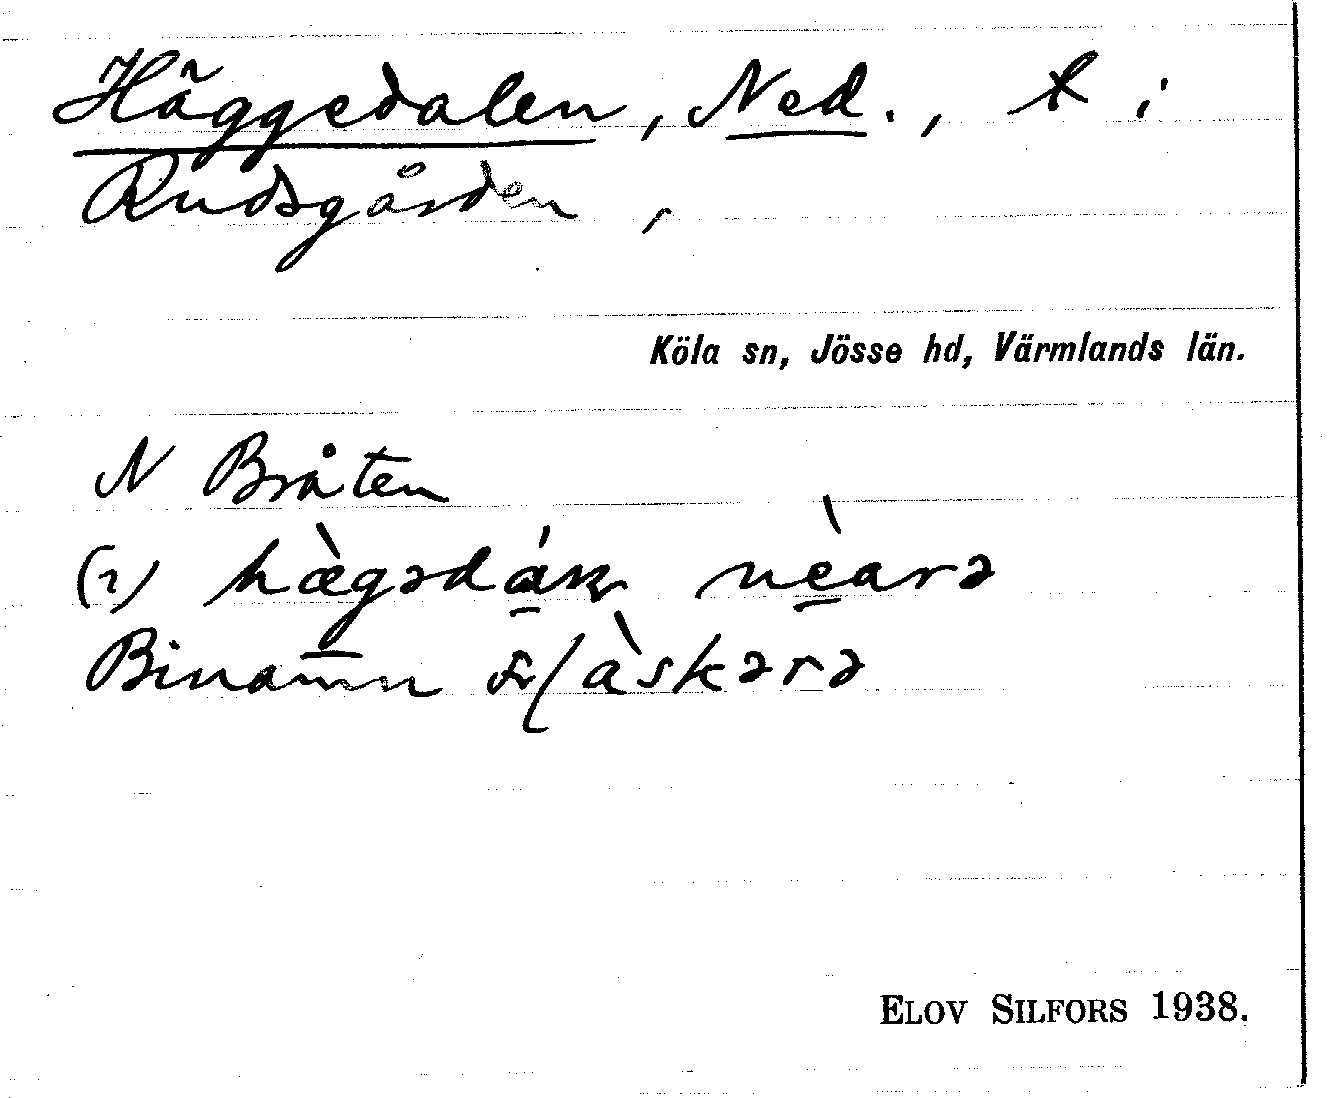 Häggedalen, Ned., t i
Rudsgården,
Köla sn, Jösse hd, Värmlands län.
N Bråten
(2) hæ̀gədán nèarə
Binamn àskərə
ELOV SILFORS 1938.